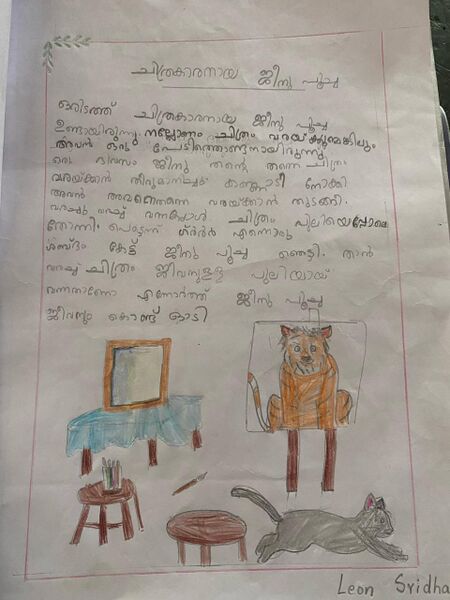 ചിത്രകാരനായ ജീനു പൂച്ച
ഒരിടത്ത് ചിത്രകാരനായ ജീനു പൂച്ച
ഉണ്ടായിരുന്നു. നല്ലോണം ചിത്രം വരയ്ക്കുമെങ്കിലും
അവൻ ഒരു പേടിത്തൊണ്ടനായിരുന്നു.
ഒരു ദിവസം ജീനു തന്റെ തന്നെ ചിത്രം
വരയ്ക്കാൻ തീരുമാനിച്ചു. കണ്ണാടി നോക്കി
അവൻ അവനെത്തന്നെ വരയ്ക്കാൻ തുടങ്ങി.
വരച്ചു വരച്ചു വന്നപ്പോൾ ചിത്രം പുലിയെപ്പോലെ
തോന്നി. പെട്ടന്ന് ഗ്ർർർ എന്നൊരു
ശബ്ദം കേട്ട് ജീനു പൂച്ച ഞെട്ടി. താൻ
വരച്ച ചിത്രം ജീവനുള്ള പുലിയായ്
വന്നതാണോ എന്നോർത്ത് ജീനു പൂച്ച
ജീവനും കൊണ്ട് ഓടി
Leon Sridha